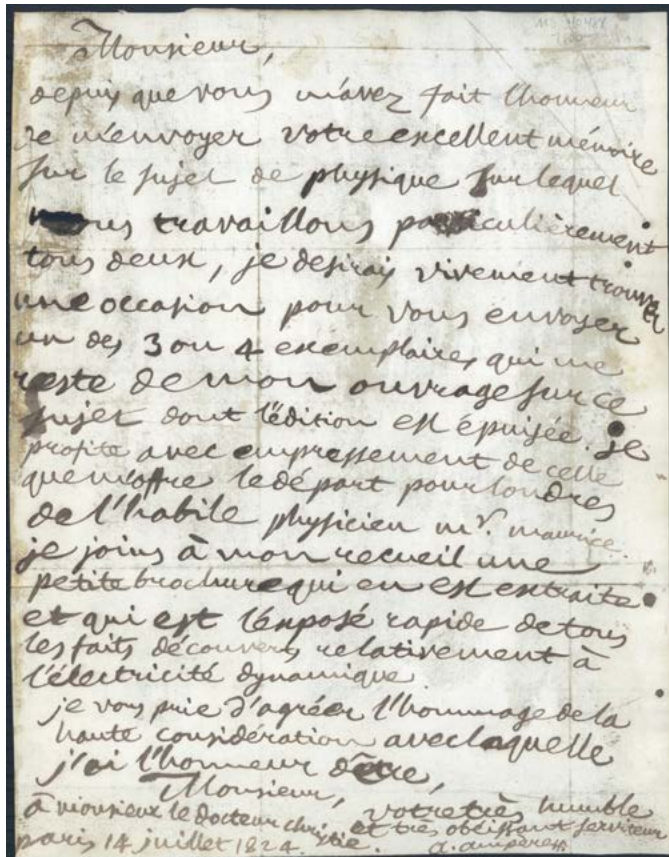 Monsieur,
depuis que vous m'avez fait l'honneur
de m'envoyer votre excellent mémoire
sur le sujet de physique sur lequel
nous travaillons particulièrement
tous deux, je desirais vivement trouver
une occasion pour vous envoyer
un des 3 ou 4 exemplaires qui me
reste de mon ouvrage sur ce
sujet dont l'édition est épuisée. je
profite avec empressement de celle
que m'offre le départ pour londres
de l'habile physicien mr. maurice.
je joins à mon recueil une
petite brochure qui en est extraite
et qui est l'exposé rapide de tous
les faits découverts relativement à
l'électricité dynamique
je vous prie d'agréer l'hommage de la
haute considération avec laquelle
j'ai l'honneur d'être,
Monsieur,
votre très humble
et très obéissant serviteur
a. ampère
à monsieur le docteur christie.
paris 14 juillet 1824.